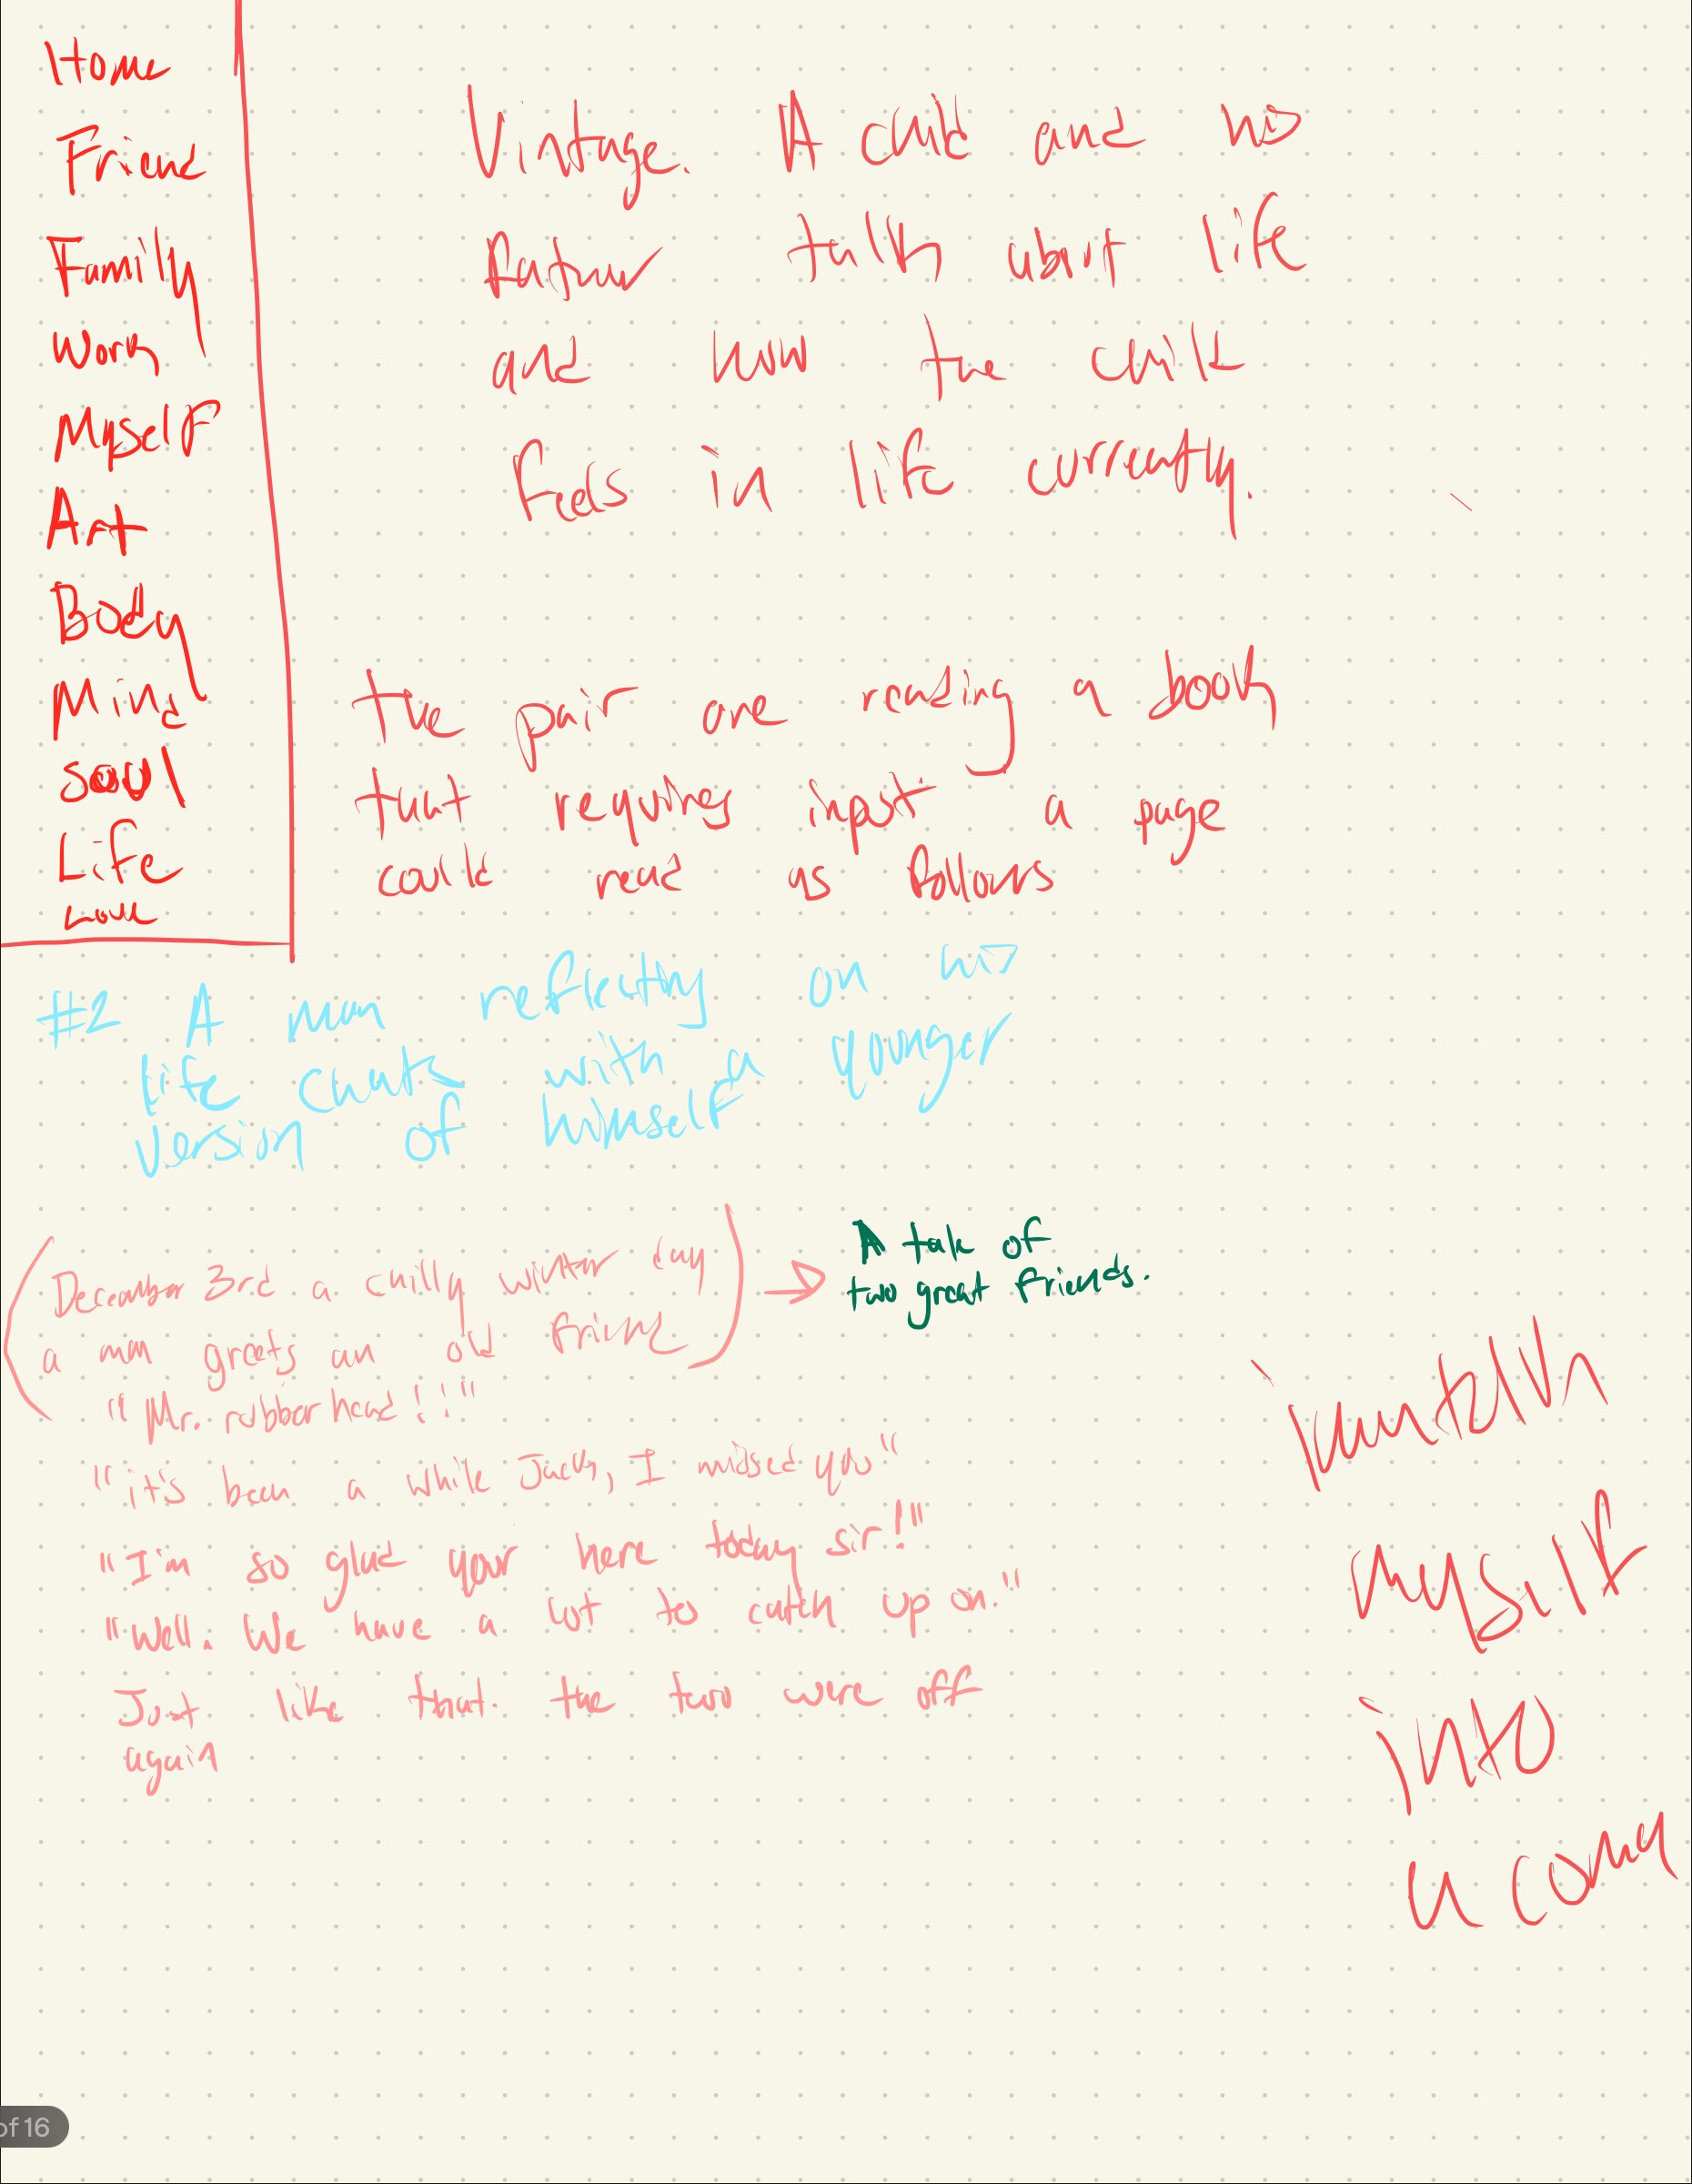 Home
Friend
Family
Work
Myself
Art
Body
Mind
Soul
Life
Love
Vintage. A child and his
father talk about life
and how the child
feels in life currently.
the pair are reading a book
that requires input a page
could read as follows
#2 A man reflecting on his
life chats with a younger
version of himself
(December 3rd a chilly winter day
a man greets an old friend)
A tale of
two great friends.
"Mr. rubber head!!!"
"it's been a while Jack, I missed you"
"I'm so glad your here today sir!"
"Well. We have a lot to catch up on."
Just like that. the two were off
again
myself
into
a coma
of 16